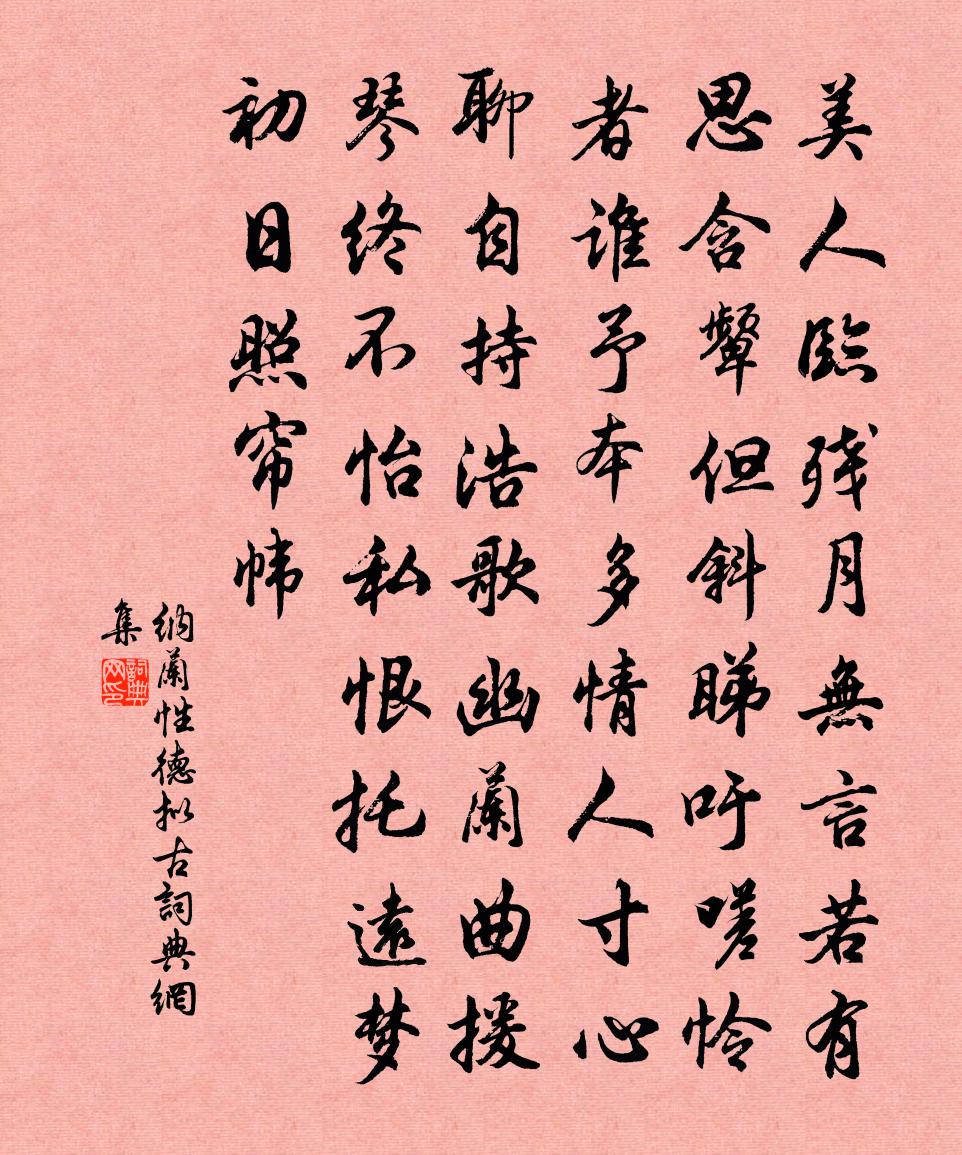 美人臨残月無言若有
思含颦但斜睇吁嗟怜
者谁予本多情人寸心
聊自持浩歌幽蘭曲援
琴终不怡私恨托遠梦
初日照帘帏
纳蘭性德拟古詞典網
集
詞典
网印